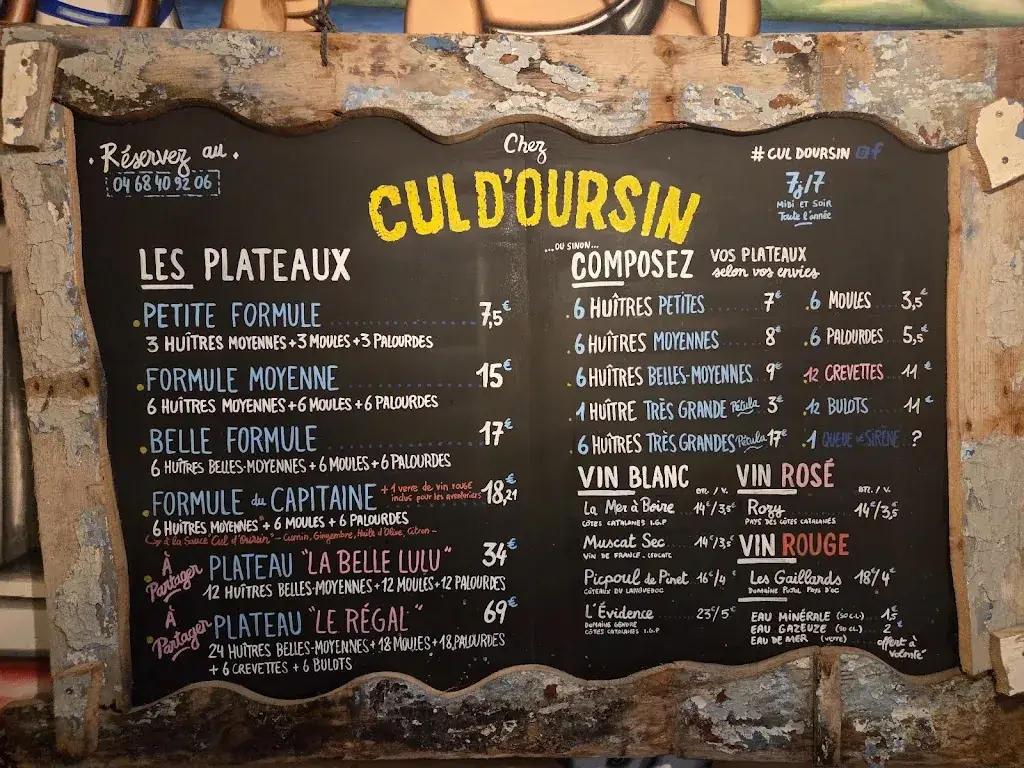 Réservez au
04 68 40 92 06
Chez
CUL D'OURSIN
# CUL DOURSIN
7j/7
MIDI ET SOIR
Toute l'année
LES PLATEAUX
PETITE FORMULE 7,5€
3 HUÎTRES MOYENNES + 3 MOULES + 3 PALOURDES
FORMULE MOYENNE 15€
6 HUÎTRES MOYENNES + 6 MOULES + 6 PALOURDES
BELLE FORMULE 17€
6 HUÎTRES BELLES-MOYENNES + 6 MOULES + 6 PALOURDES
FORMULE du CAPITAINE + 1 verre de vin rouge inclus pour les aventuriers 18,21€
6 HUÎTRES MOYENNES* + 6 MOULES + 6 PALOURDES
à la Sauce "Cul d'Oursin" - Cumin, Gingembre, Huile d'Olive, Citron -
À Partager PLATEAU "LA BELLE LULU" 34€
12 HUÎTRES BELLES-MOYENNES + 12 MOULES + 12 PALOURDES
À Partager PLATEAU "LE RÉGAL" 69€
24 HUÎTRES BELLES-MOYENNES + 18 MOULES + 18 PALOURDES
+ 6 CREVETTES + 6 BULOTS
...OU SINON...
COMPOSEZ VOS PLATEAUX
selon vos envies
6 HUÎTRES PETITES 7€
6 HUÎTRES MOYENNES 8€
6 HUÎTRES BELLES-MOYENNES 9€
1 HUÎTRE TRÈS GRANDE Pétula 3€
6 HUÎTRES TRÈS GRANDES Pétula 17€
6 MOULES 3,5€
6 PALOURDES 5,5€
12 CREVETTES 11€
12 BULOTS 11€
1 QUEUE de SIRÈNE ?
VIN BLANC
BTL. / V.
La Mer à Boire 14€/3,5€
CÔTES CATALANES I.G.P
Muscat Sec 14€/3,5€
VIN DE FRANCE - LEUCATE
Picpoul de Pinet 16€/4€
CÔTEAUX DU LANGUEDOC
L'Évidence 23€/5€
DOMAINE GENDRE
CÔTES CATALANES I.G.P
VIN ROSÉ
BTL. / V.
Rozy 14€/3,5€
PAYS DES CÔTES CATALANES
VIN ROUGE
Les Gaillards 18€/4€
DOMAINE PUJOL, PAYS D'OC
EAU MINÉRALE (50 CL) 1,5€
EAU GAZEUZE (50 CL) 2€
EAU DE MER (VERRE) offert à volonté